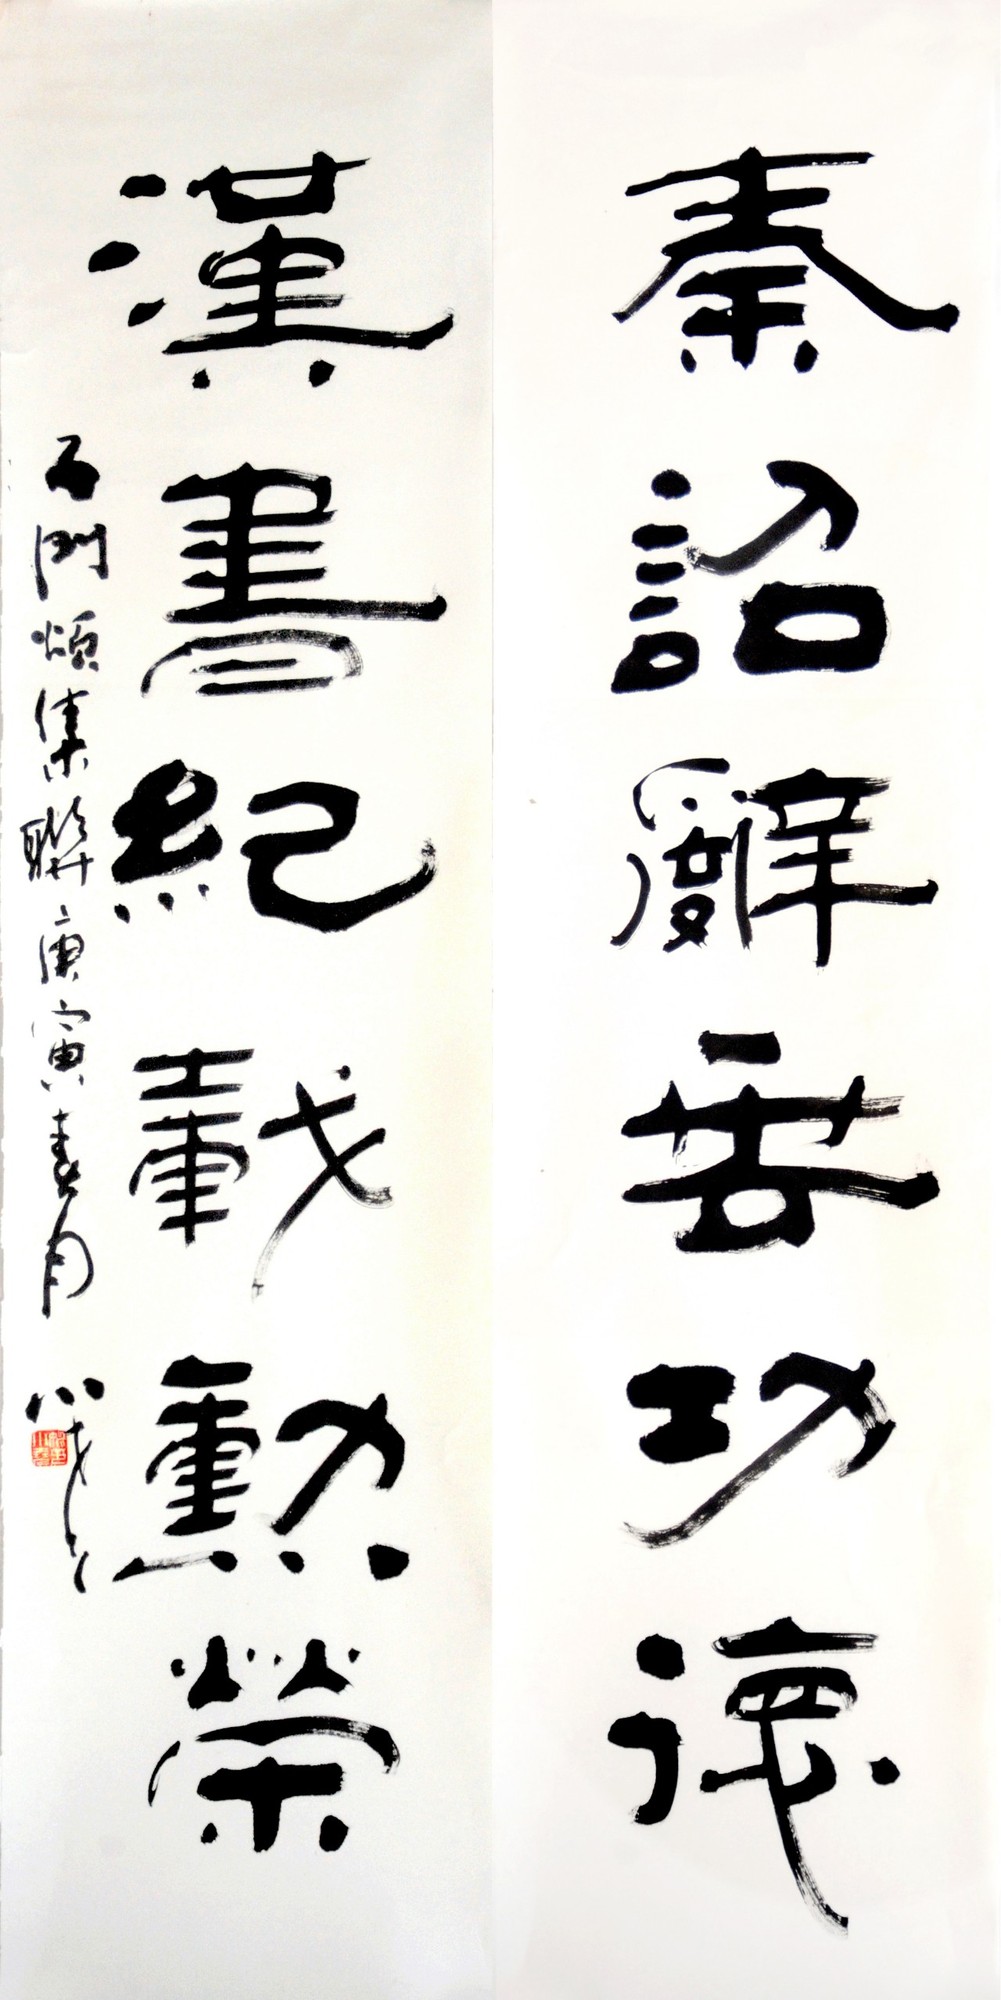 秦詔辭垂功德
漢書紀載勳榮
石門頌集聯庚寅春月